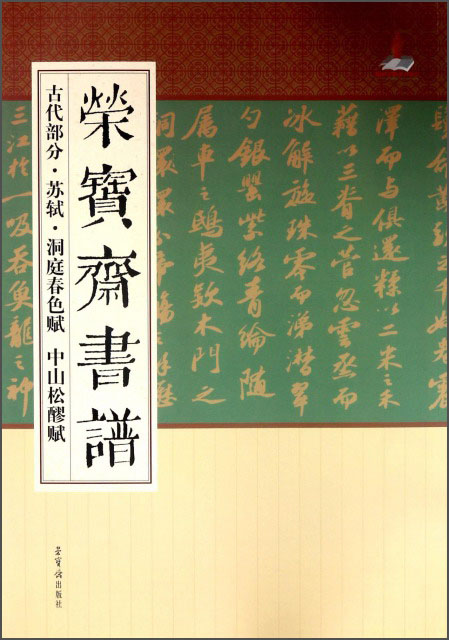 榮寶齋書譜
古代部分·苏轼·洞庭春色赋 中山松醪赋
澤而與俱還糅以二米之禾
藉以三脊之菅忽雲烝而
冰解旋珠零而涕潸翠
勺銀罌紫絡青綸隨
属車之鴟夷欵木門之
三江於一吸吞魚龍之神
荣宝斋出版社